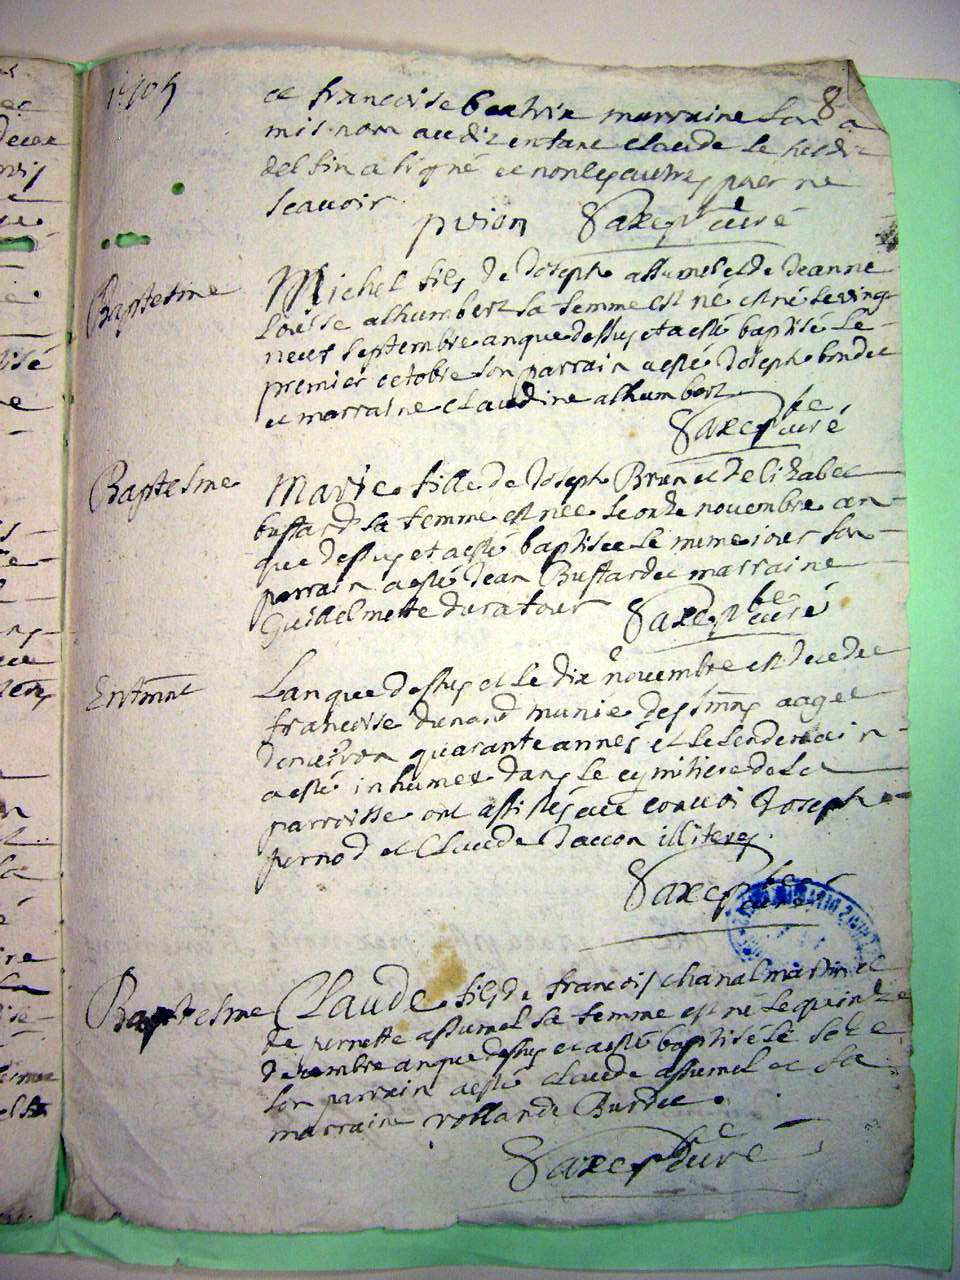 1705
8
et francoise beatrix marraine son a
mis nom audit enfant claude le hardi
del fin a signé et non les autres pour ne
scavoir
puion curé
Baptesme
Michel fils de Joseph assumel et de Jeanne
Loüise alhumbert sa femme est né est né le ving
neuf septembre an que dessus et a esté baptisé le
premier octobre son parrain a esté Joseph
et marraine claudine alhumbert
curé
Baptesme
Marie fille de Joseph Brun et delizabet
bustard sa femme est née le onze novembre an
que dessus et a esté baptisée le mime iour son
parrain a esté Jean Bustard et marraine
Guillelmette duratour
curé
Entmnt
Lan que dessus et le dix novembre est decedee
francoise dunand munie des smns aagee
denviron quarante années et le lendemain
a esté inhumee dans le cymitiere de la
parroisse ont assistés au convoi Joseph
pernod et Claude Jaccon illiteres
curé
Baptesme
Claude fils de francois chanal martin et
de pernette assumel sa femme est né le quinze
decembre an que dessus et a esté baptisé le seze
son parrain a esté claude assumel et sa
marraine rollande Burdet
curé